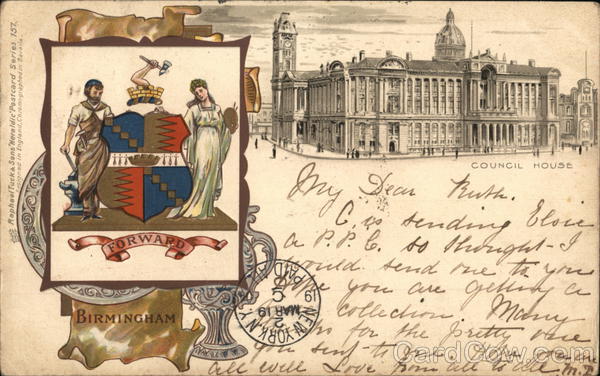 Raphael Tuck & Sons "Heraldic" Postcard Series 157.
Designed in England, Chromographed in Bavaria.
FORWARD
BIRMINGHAM
COUNCIL HOUSE
My Dear Ruth.
C. is sending Elsie
a P.P.C. so thought I
would send one to you
you are getting a
collection. Many
for the pretty one
you sent
all well Love from all to all
M.
NEW YORK, N.Y.
PAID
C
2
MAR 19
CardCow.com